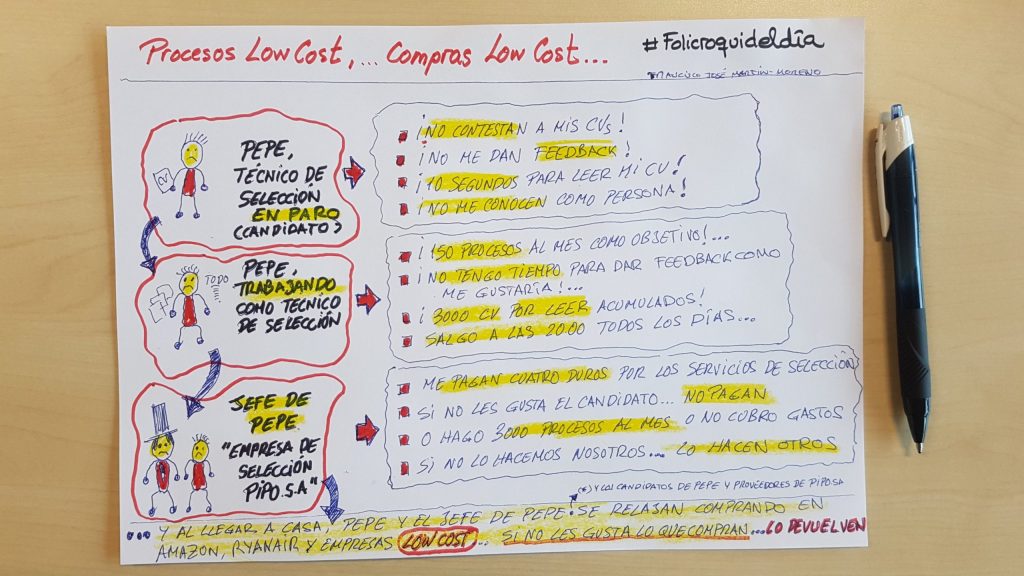 Procesos Low Cost, ... Compras Low Cost...
#Folicroquideldía
FRANCISCO JOSÉ MARTÍN-MORENO
CV
PEPE,
TÉCNICO DE
SELECCIÓN
EN PARO
(CANDIDATO)
¡NO CONTESTAN A MIS CVs!
¡NO ME DAN FEEDBACK!
¡10 SEGUNDOS PARA LEER MI CV!
¡NO ME CONOCEN COMO PERSONA!
TODO
PEPE,
TRABAJANDO
COMO TECNICO
DE SELECCIÓN
¡150 PROCESOS AL MES COMO OBJETIVO!...
¡NO TENGO TIEMPO PARA DAR FEEDBACK COMO
ME GUSTARÍA!...
¡3000 CV POR LEER ACUMULADOS!
SALGO A LAS 20:00 TODOS LOS DÍAS...
JEFE DE
PEPE
"EMPRESA DE
SELECCIÓN
PIPO.S.A"
ME PAGAN CUATRO DUROS POR LOS SERVICIOS DE SELECCIÓN
SI NO LES GUSTA EL CANDIDATO... NO PAGAN
O HAGO 3000 PROCESOS AL MES O NO CUBRO GASTOS
SI NO LO HACEMOS NOSOTROS... LO HACEN OTROS
(*) Y LOS CANDIDATOS DE PEPE Y PROVEEDORES DE PIPO.SA
... Y AL LLEGAR A CASA, PEPE Y EL JEFE DE PEPE* SE RELAJAN COMPRANDO EN
AMAZON, RYANAIR Y EMPRESAS LOW COST... SI NO LES GUSTA LO QUE COMPRAN... LO DEVUELVEN